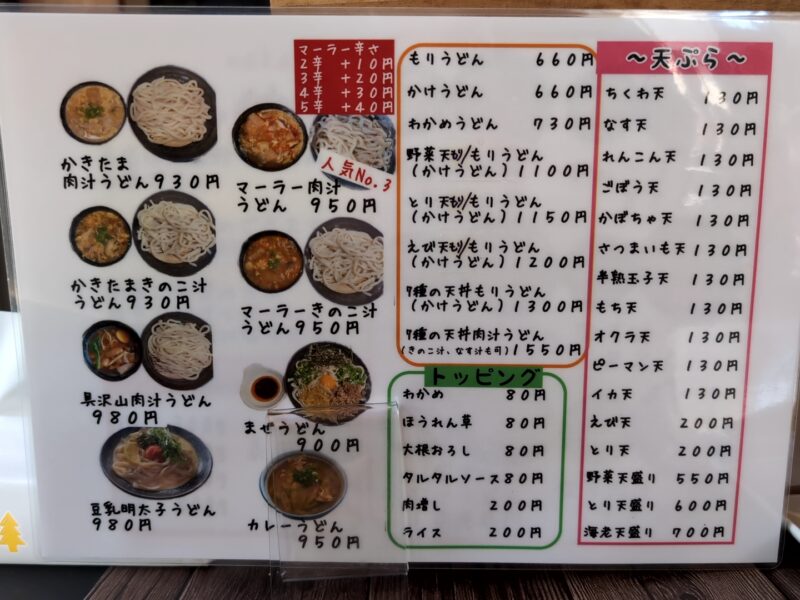 かきたま
肉汁うどん930円
かきたまきのこ汁
うどん930円
具沢山肉汁うどん
980円
豆乳明太子うどん
980円
マーラー辛さ
2辛 +10円
3辛 +20円
4辛 +30円
5辛 +40円
人気No.3
マーラー肉汁
うどん 950円
マーラーきのこ汁
うどん 950円
まぜうどん
900円
カレーうどん
950円
もりうどん 660円
かけうどん 660円
わかめうどん 730円
野菜天もり/もりうどん
(かけうどん)1100円
とり天もり/もりうどん
(かけうどん)1150円
えび天もり/もりうどん
(かけうどん)1200円
7種の天丼もりうどん
(かけうどん)1300円
7種の天丼肉汁うどん
(きのこ汁、なす汁も可)1550円
トッピング
わかめ 80円
ほうれん草 80円
大根おろし 80円
タルタルソース80円
肉増し 200円
ライス 200円
～天ぷら～
ちくわ天 130円
なす天 130円
れんこん天 130円
ごぼう天 130円
かぼちゃ天 130円
さつまいも天130円
半熟玉子天 130円
もち天 130円
オクラ天 130円
ピーマン天 130円
イカ天 130円
えび天 200円
とり天 200円
野菜天盛り 550円
とり天盛り 600円
海老天盛り 700円